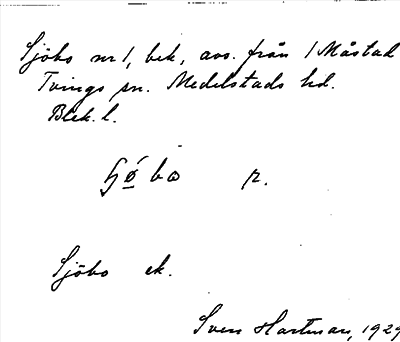 Sjöbo nr 1, bek, avs. från 1 Måstad
Tvings sn. Medelstads hd.
Blek. l.
ɧǿbω r.
Sjöbo ek.
Sven Hartman, 1929